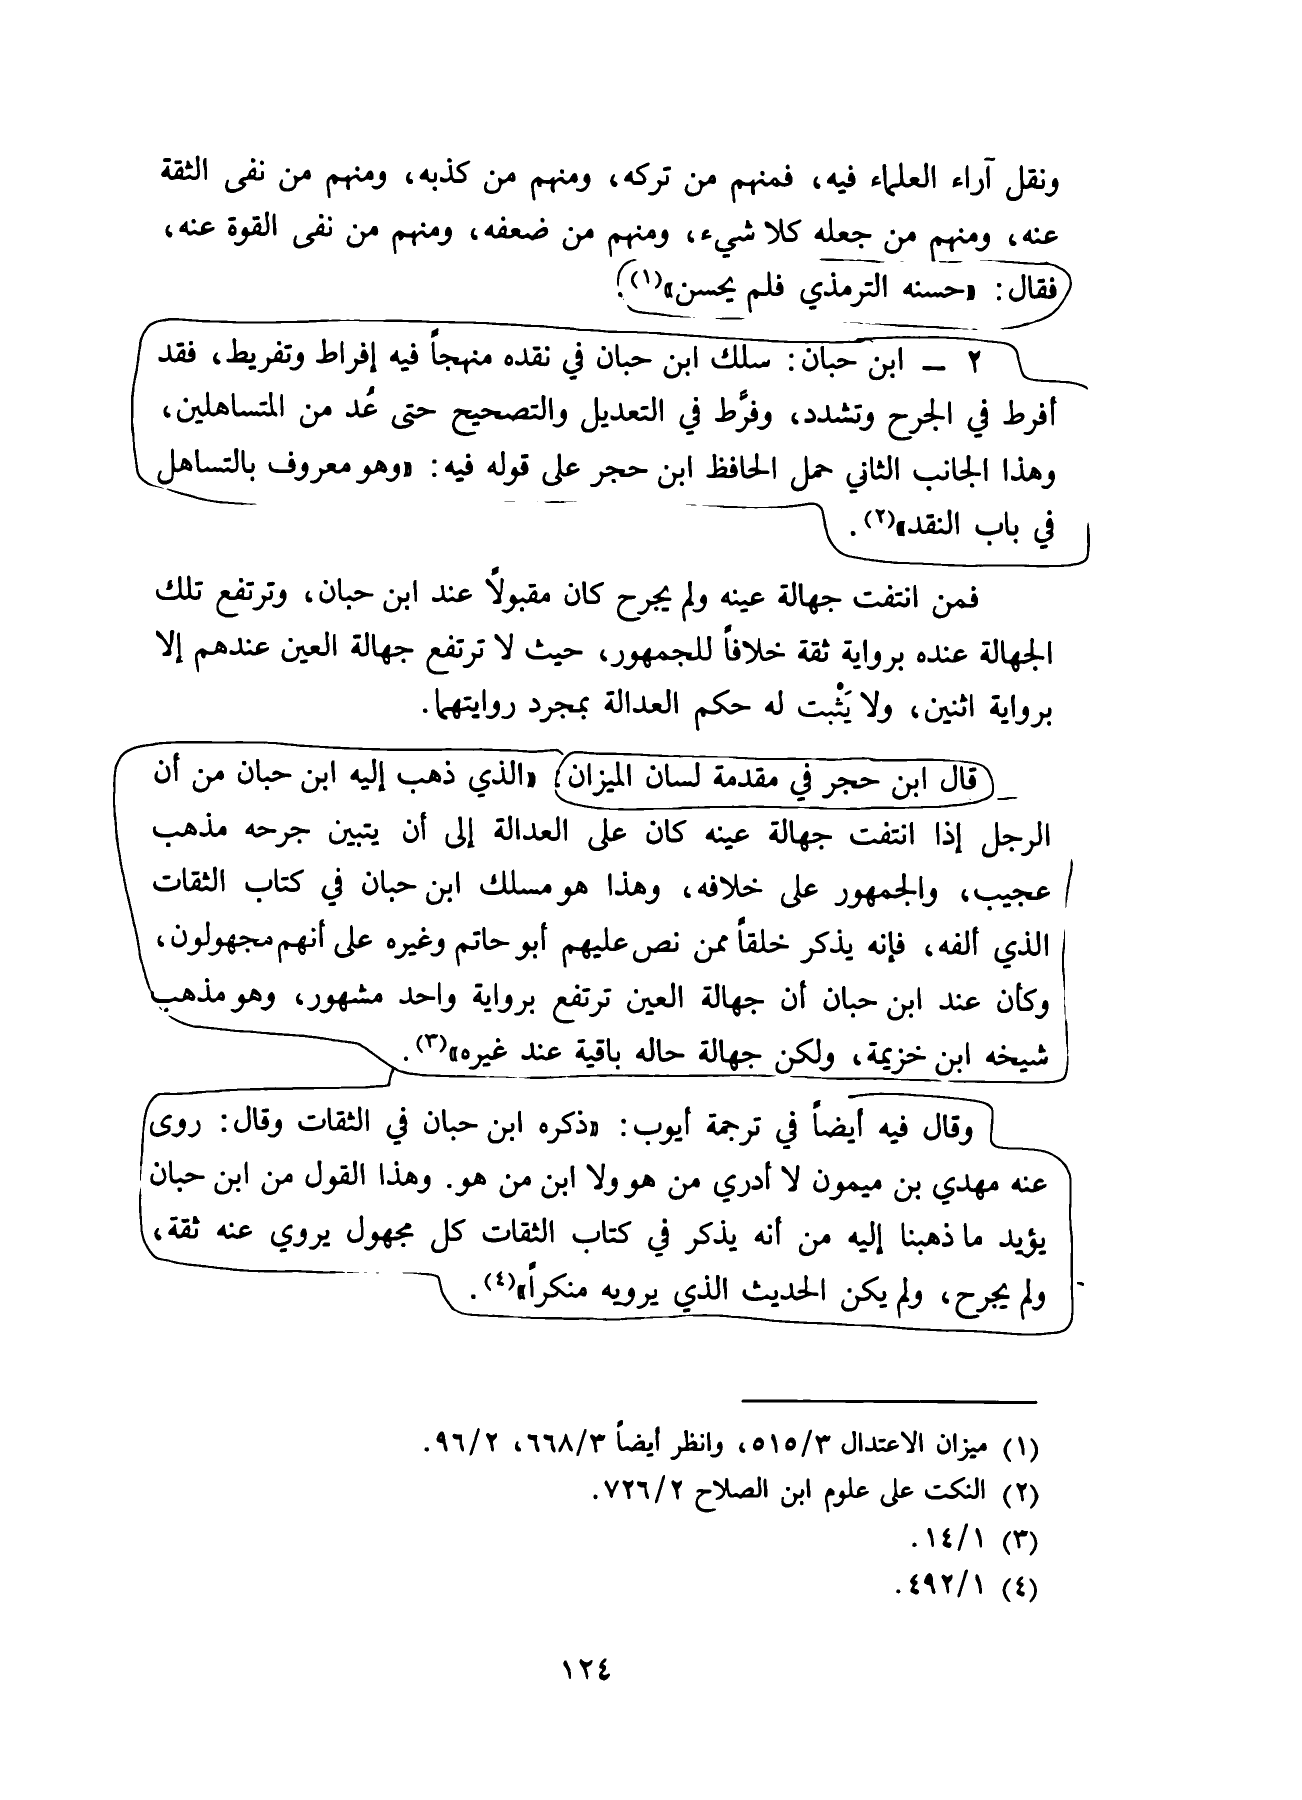 ونقل آراء العلماء فيه، فمنهم من تركه، ومنهم من كذبه، ومنهم من نفى الثقة
عنه، ومنهم من جعله كلا شيء، ومنهم من ضعفه، ومنهم من نفى القوة عنه،
فقال: «حسنه الترمذي فلم يحسن»(١).
٢ ــ ابن حبان: سلك ابن حبان في نقده منهجاً فيه إفراط وتفريط، فقد
أفرط في الجرح وتشدد، وفرَّط في التعديل والتصحيح حتى عُد من المتساهلين،
وهذا الجانب الثاني حمل الحافظ ابن حجر على قوله فيه: «وهو معروف بالتساهل
في باب النقد»(٢).
فمن انتفت جهالة عينه ولم يجرح كان مقبولاً عند ابن حبان، وترتفع تلك
الجهالة عنده برواية ثقة خلافاً للجمهور، حيث لا ترتفع جهالة العين عندهم إلا
برواية اثنين، ولا يَثْبت له حكم العدالة بمجرد روايتهما.
قال ابن حجر في مقدمة لسان الميزان: «الذي ذهب إليه ابن حبان من أن
الرجل إذا انتفت جهالة عينه كان على العدالة إلى أن يتبين جرحه مذهب
عجيب، والجمهور على خلافه، وهذا هو مسلك ابن حبان في كتاب الثقات
الذي ألفه، فإنه يذكر خلقاً ممن نص عليهم أبو حاتم وغيره على أنهم مجهولون،
وكأن عند ابن حبان أن جهالة العين ترتفع برواية واحد مشهور، وهو مذهب
شيخه ابن خزيمة، ولكن جهالة حاله باقية عند غيره»(٣).
وقال فيه أيضاً في ترجمة أيوب: «ذكره ابن حبان في الثقات وقال: روى
عنه مهدي بن ميمون لا أدري من هو ولا ابن من هو. وهذا القول من ابن حبان
يؤيد ما ذهبنا إليه من أنه يذكر في كتاب الثقات كل مجهول يروي عنه ثقة،
ولم يجرح، ولم يكن الحديث الذي يرويه منكراً»(٤).
(١) ميزان الاعتدال ٥١٥/٣، وانظر أيضاً ٦٦٨/٣، ٩٦/٢.
(٢) النكت على علوم ابن الصلاح ٧٢٦/٢.
(٣) ١٤/١.
(٤) ٤٩٢/١.
١٢٤